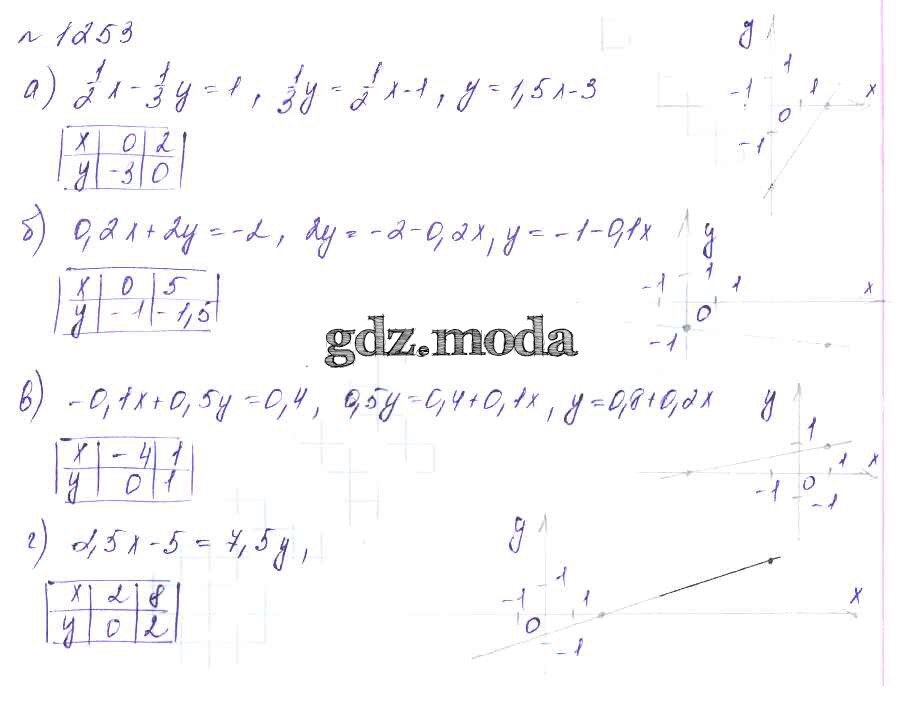 № 1253
y
а) 1/2 x - 1/3 y = 1, 1/3 y = 1/2 x - 1, y = 1,5x - 3
1
-1 1 x
0
-1
x 0 2
y -3 0
б) 0,2x + 2y = -2, 2y = -2 - 0,2x, y = -1 - 0,1x
y
-1 1 1 x
0
-1
x 0 5
y -1 -1,5
gdz.moda
в) -0,1x + 0,5y = 0,4, 0,5y = 0,4 + 0,1x, y = 0,8 + 0,2x
y
1
1 x
-1 0
-1
x -4 1
y 0 1
г) 2,5x - 5 = 7,5y,
y
1
-1 1 x
0
-1
x 2 8
y 0 2